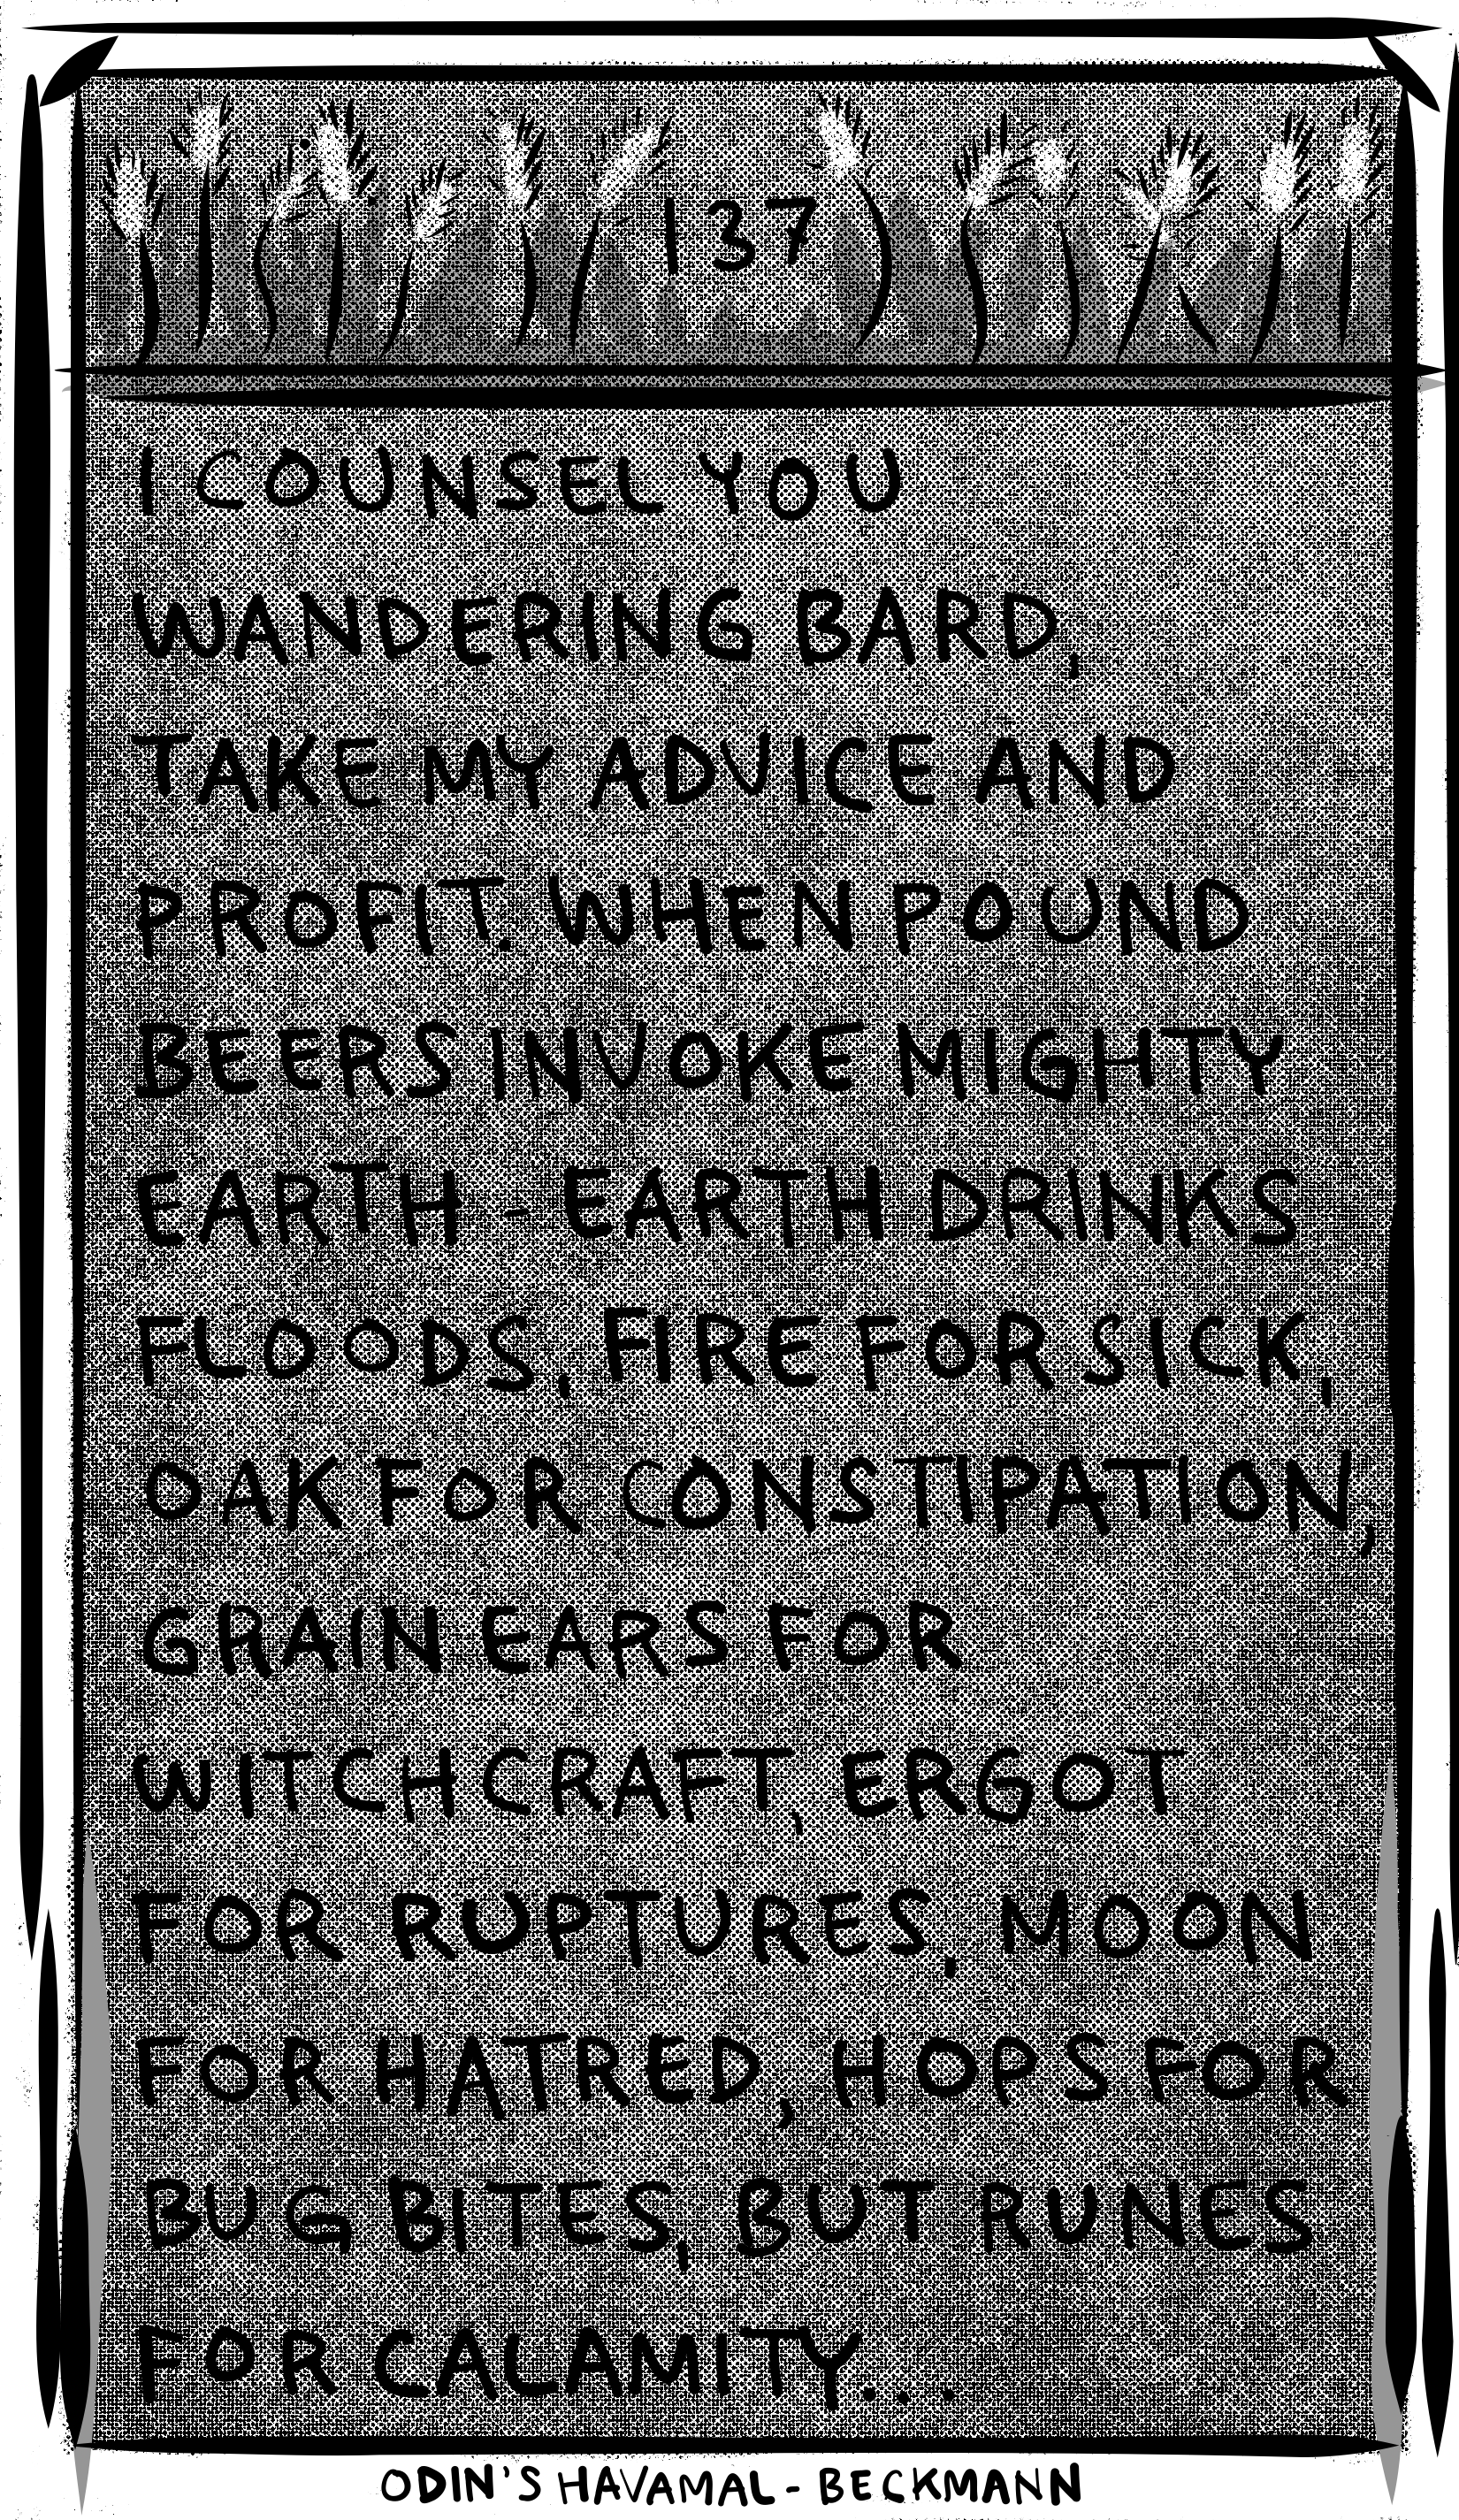 137
I COUNSEL YOU
WANDERING BARD,
TAKE MY ADVICE AND
PROFIT. WHEN POUND
BEERS INVOKE MIGHTY
EARTH - EARTH DRINKS
FLOODS, FIRE FOR SICK,
OAK FOR CONSTIPATION,
GRAIN EARS FOR
WITCHCRAFT, ERGOT
FOR RUPTURES, MOON
FOR HATRED, HOPS FOR
BUG BITES, BUT RUNES
FOR CALAMITY...
ODIN'S HAVAMAL - BECKMANN